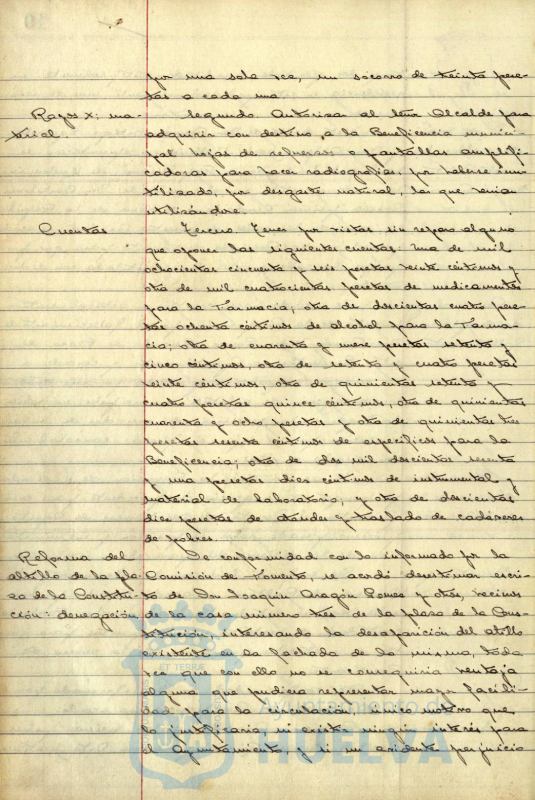 por una sola vez, un socorro de treinta pese-
tas a cada una.
Rayos X: ma-
terial.
Segundo. Autorizar al señor Alcalde para
adquirir con destino a la Beneficencia munici-
pal hojas de refuerzos o pantallas amplifi-
cadoras para hacer radiografías, por haberse inu-
tilizado, por desgaste natural, las que venian
utilizándose.
Cuentas
Tercero. Tener por vistas sin reparo alguno
que oponer las siguientes cuentas: Una de mil
ochocientas cincuenta y seis pesetas veinte céntimos y
otra de mil cuatrocientas pesetas de medicamentos
para la Farmacia; otra de doscientas cuatro pese-
tas ochenta céntimos de alcohol para la Farma-
cia; otra de cuarenta y nueve pesetas setenta y
cinco céntimos, otra de setenta y cuatro pesetas
veinte céntimos, otra de quinientas setenta y
cuatro pesetas quince céntimos, otra de quinientas
cuarenta y ocho pesetas y otra de quinientas tres
pesetas sesenta céntimos de específicos para la
Beneficencia; otra de dos mil doscientas sesenta
y una pesetas diez céntimos de instrumental y
material de laboratorio, y otra de doscientas
diez pesetas de ataudes y traslado de cadáveres
de pobres.
Reforma del
altillo de la pla-
za de la Constitu-
ción: denegación
De conformidad con lo informado por la
Comisión de Fomento, se acordó desestimar escri-
to de Don Joaquín Aragón Gomez y otros, vecinos
de la casa número tres de la plaza de la Cons-
titución, interesando la desaparición del altillo
existente en la fachada de la misma, toda
vez que con ello no se conseguiria ventaja
alguna que pudiera representar mayor facili-
dad para la circulación, unico motivo que
lo justificaria, ni existir ningún interés para
el Ayuntamiento, y si un evidente perjuicio
ET TERRÆ
Ayuntamiento de
HUELVA